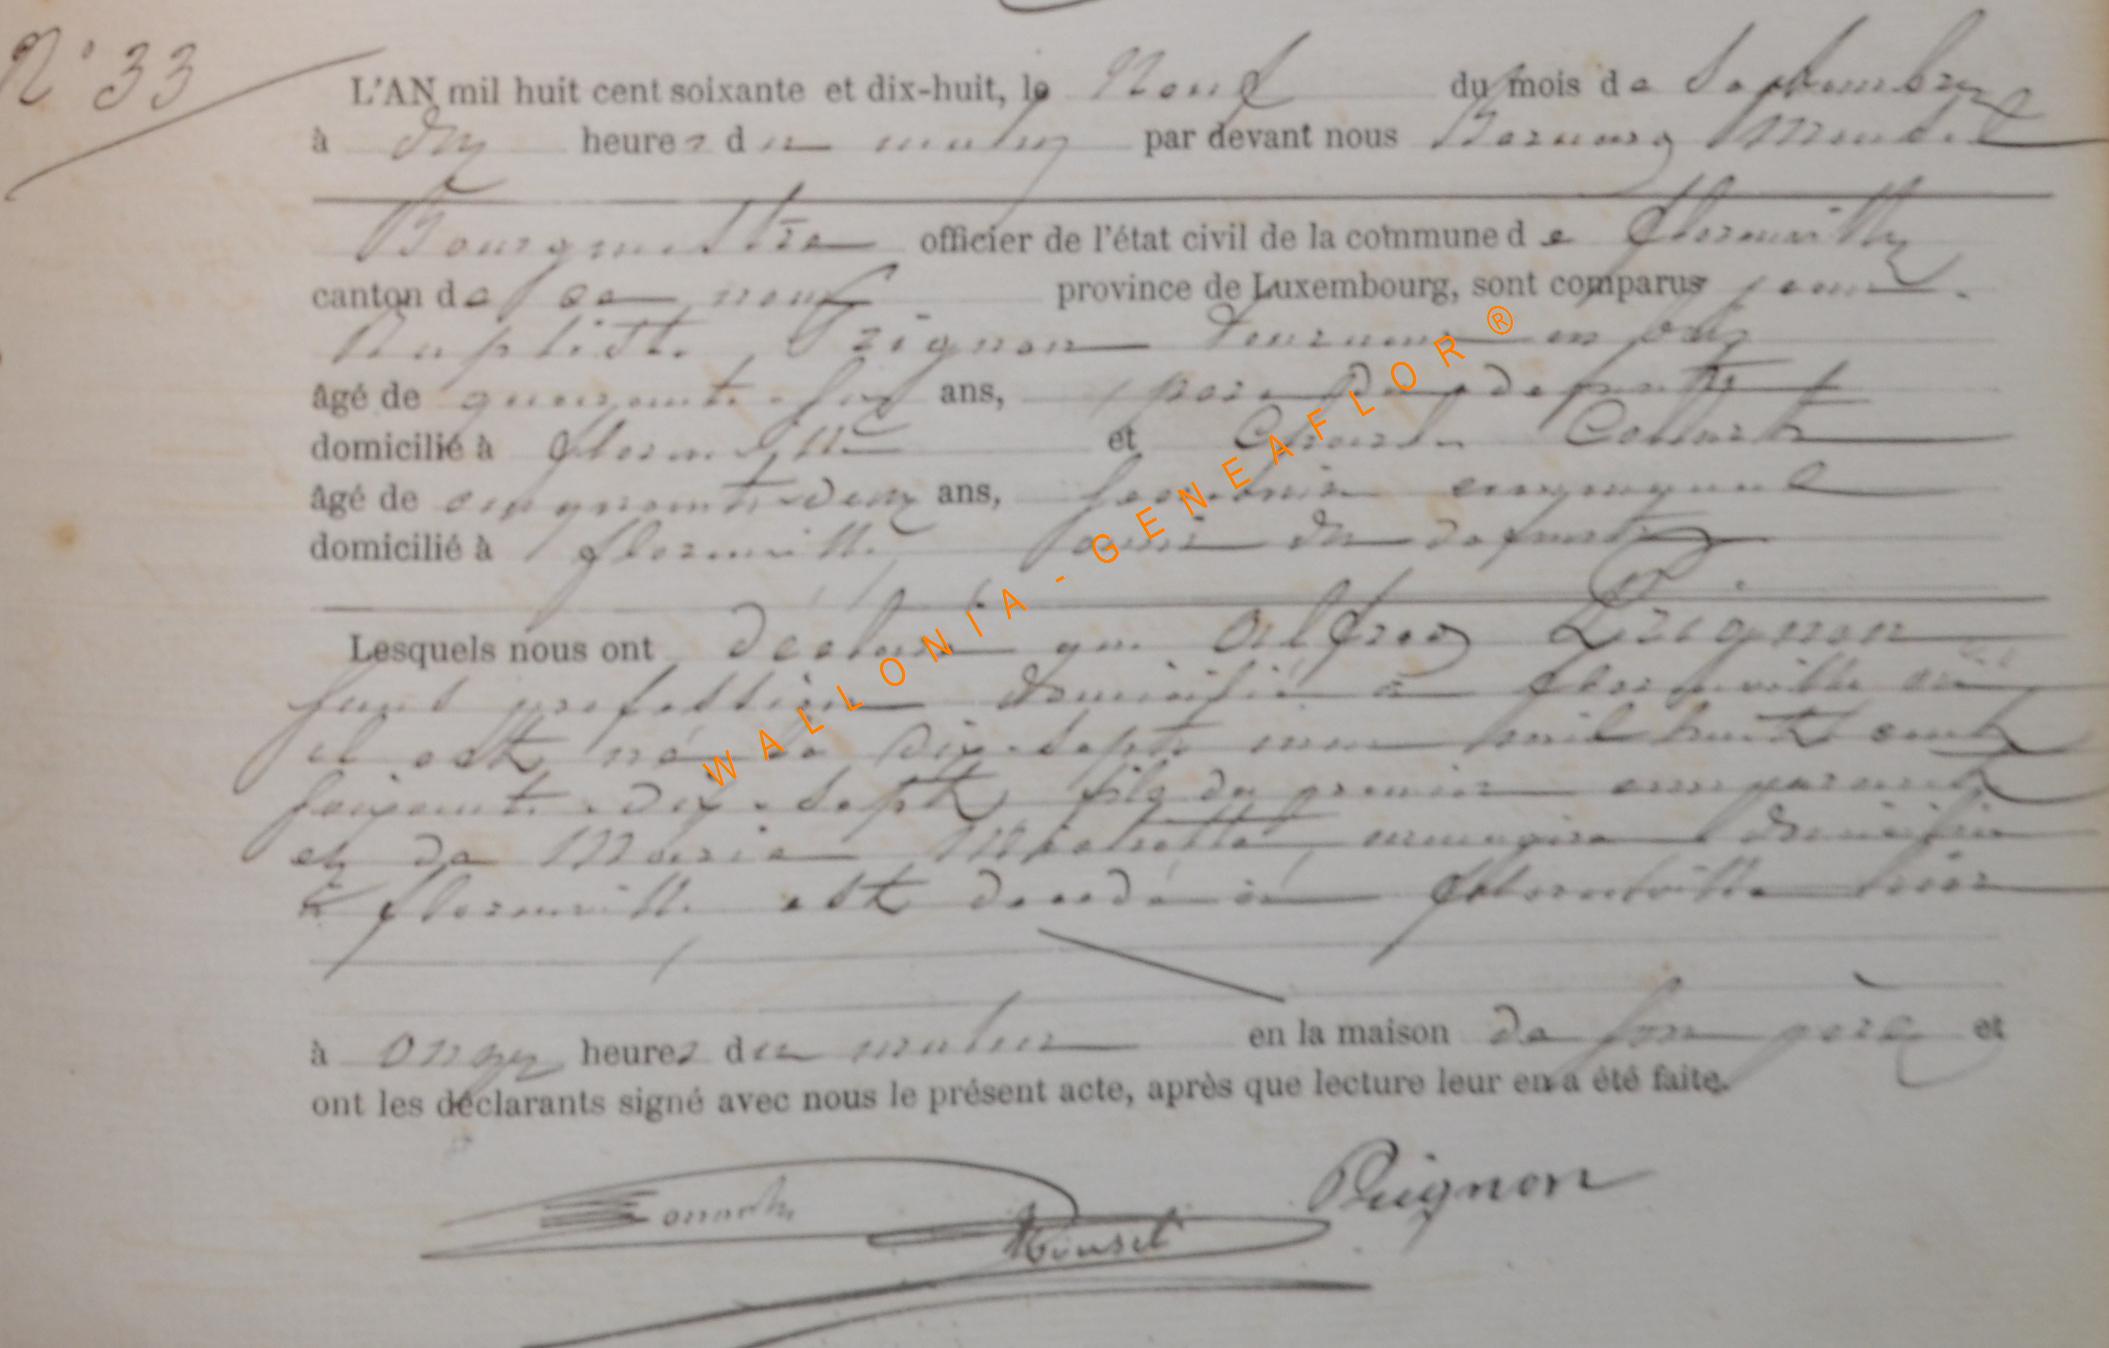 N° 33
L'AN mil huit cent soixante et dix-huit, le Neuf du mois de Septembre
à dix heures du matin par devant nous Bernard
Bourgmestre officier de l'état civil de la commune de florenville
canton de province de Luxembourg, sont comparus jean
Baptiste Prignon tourneur en bois
âgé de quarante-six ans, père du défunt
domicilié à florenville et Charles
âgé de cinquante-deux ans,
domicilié à florenville ami du defunt
Lesquels nous ont déclaré que Alfred Prignon
sans profession domicilié à florenville où
il est né le dix-sept mil huit cent
soixante-dix-sept, fils du premier comparant
et de Marie ménagère domiciliée
à florenville est décédé à florenville hier
à onze heures du matin en la maison de son père et
ont les déclarants signé avec nous le présent acte, après que lecture leur en a été faite.
Prignon
WALLONIA-GENEAFLOR®